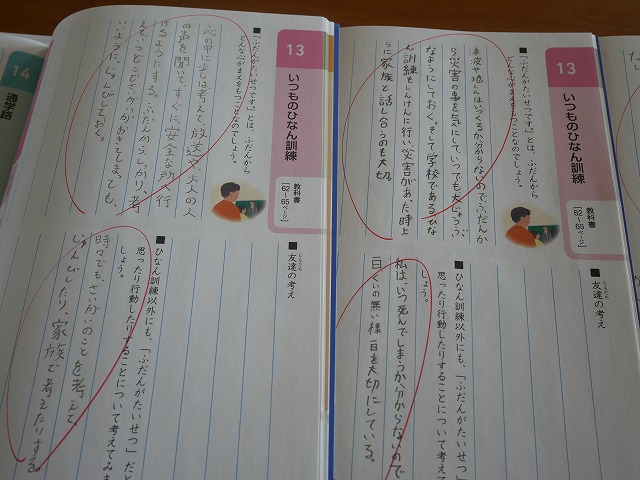 13
いつものひなん訓練
教科書
[62～65ページ]
■「ふだんがたいせつです。」とは、ふだんから
どんな心がまえをもつことなのでしょう。
津波や地しんはいつくるか分からないのでふだんか
ら災害の事を気にして、いつでも大じょうぶ
なようにしておく。そして学校であるひな
ん訓練もしんけんに行い、災害があた時よ
うに家族と話し合うのも大切
■友達の考え
ともだち
■ひなん訓練以外にも、「ふだんがたいせつ」
思ったり行動したりすることについて考えて
しょう。
私は、いつ死んでしまうか分からないので
一日くいの無い様一日を大切にしている。
13
いつものひなん訓練
教科書
[62～65ページ]
■「ふだんがたいせつです。」とは、ふだんから
どんな心がまえをもつことなのでしょう。
心の中に少しは考えて、放送や大人の人
の声を聞いてすぐに安全な所へ行
けるようにする。ふだんからしっかり、考
えて、いつどこでさいがいがおきてしまっても、
いいように、じゅんびしておく。
■友達の考え
ともだち
■ひなん訓練以外にも、「ふだんがたいせつ」だと
思ったり行動したりすることについて考えてみま
しょう。
時々でも、さいがいのことを考えて
じゅんびしたり、家族で考えたりする。
14
通学路